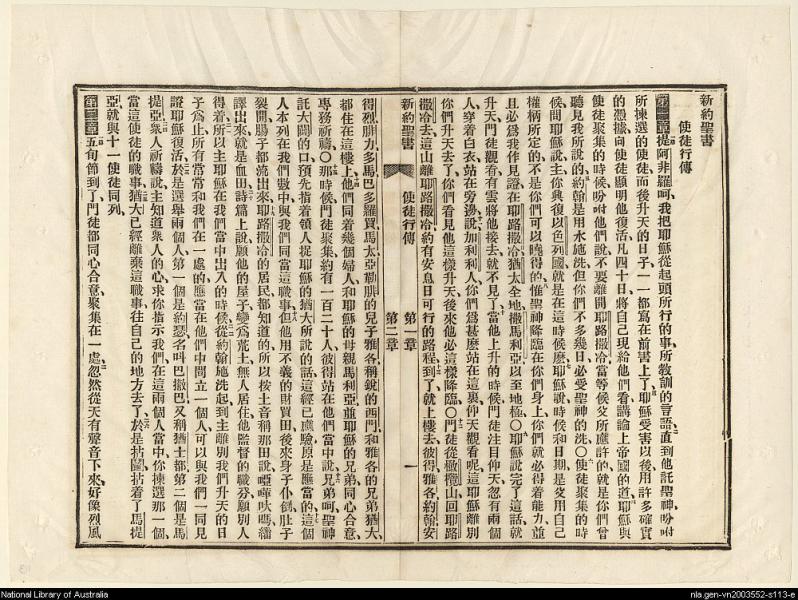 新約聖書
使徒行傳
第一章提阿非羅呵我把耶穌從起頭所行的事所教訓的言語直到他託聖神吩咐
所揀選的使徒而後升天的日子一一都寫在前書上了耶穌受害以後用許多確實
的憑據向使徒顯明他復活凡四十日將自己現給他們看講論上帝國的道耶穌與
使徒聚集的時候吩咐他們說不要離開耶路撒冷當等候父所應許的就是你們曾
聽見我所說的約翰是用水施洗但你們不多幾日必受聖神的洗〇使徒聚集的時
候問耶穌說主你興復以色列國就是在這時候麽耶穌說時候和日期是父用自己
權柄所定的不是你們可以曉得的惟聖神降臨在你們身上你們就必得着能力並
且必爲我作見證在耶路撒冷猶太全地撒馬利亞以至地極〇耶穌說完了這話就
升天門徒觀看有雲將他接去就不見了當他上升的時候門徒注目仰天忽有兩個
人穿着白衣站在旁邊說加利利人你們爲甚麽站在這裏仰天觀看呢這耶穌離別
你們升天去了你們看見他這樣升天後來他必這樣降臨〇門徒從橄欖山回耶路
撒冷去這山離耶路撒冷約有安息日可行的路程到了就上樓去彼得雅各約翰安
新約聖書 使徒行傳 第一章 第二章 一
得烈腓力多馬巴多羅買馬太亞勒腓的兒子雅各稱銳的西門和雅各的兄弟猶大
都住在這樓上他們同着幾個婦人和耶穌的母親馬利亞並耶穌的兄弟同心合意
專務祈禱〇那時候門徒聚集約有一百二十人彼得站在他們當中說兄弟呵聖神
託大闢的口預先指着領人捉耶穌的猶大所說的話這經已應驗原是應當的這個
人本列在我們數中與我們同當這職事但他用不義的財買田後來身子仆倒肚子
裂開腸子都流出來耶路撒冷的居民都知道的所以按土音稱那田說啞嚩吠嗎繙
譯出來就是血田詩篇上說願他的屋子變爲荒土無人居住他監督的職分願別人
得着所以主耶穌在我們當中出入的時候從約翰施洗起到主離別我們升天的日
子爲止所有常常和我們在一處的應當在他們中間立一個人可以與我們一同見
證耶穌復活於是選舉兩個人第一個是約瑟名叫巴撒巴又稱猶士都第二個是馬
提亞衆人祈禱說主知道衆人的心求你指示我們在這兩個人當中你揀選那一個
當這使徒的職事猶大已經離棄這職事往自己的地方去了於是拈鬮拈着了馬提
亞就與十一使徒同列
第二章五旬節到了門徒都同心合意聚集在一處忽然從天有聲音下來好像烈風
National Library of Australia
nla.gen-vn2003552-s113-e